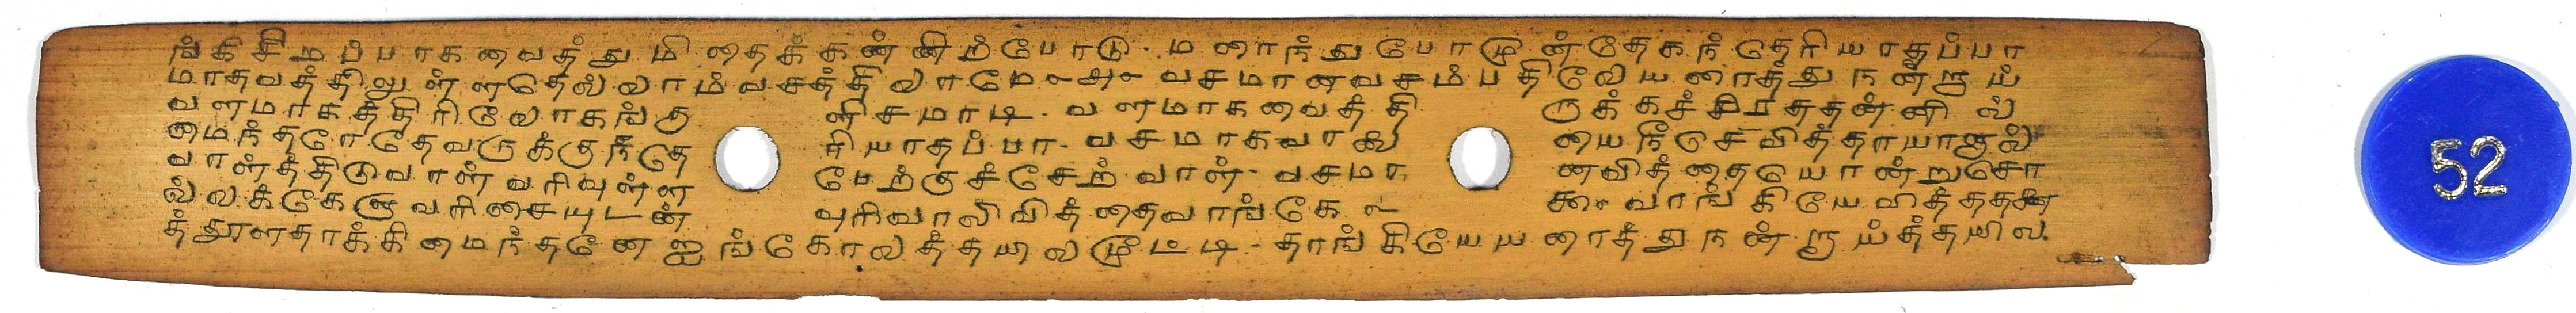 ங்கிசிறப்பாகவைத்துமிதைக்கன்னிற்போடு - மனாந்துபோமுன்தேகந்தெரியாதப்பா
மாதவத்திலுள்ளதெல்லாம்வசத்திலாமே வசமானவசம்பதிலேயனைத்துநன்றாய்
வளமாகத்திரிலோகங்கு ளிசமாடி - வளமாகவைத்தி ருக்கச் சித்ததன்னில்
மைந்தரோதேவருக்குந்தே ரியாதப்பா - வசமாகவா யைநீசெவித்தாயானால்
வாள்த்திடுவாள்வரிவுள்ள மேற்குச்சேற்வாள் - வசமா னவித்தையோன்றுசொ
ல்லக்கேளுவரிசையுடன் வுரிவாலிவித்தைவாங்கே வாங்கியேவித்ததனை
த்தூளதாக்கிமைந்தனேஐங்கோலத்தயிலமூட்டி - தாங்கியேயனாத்துநன்றாய்த்தயில
52